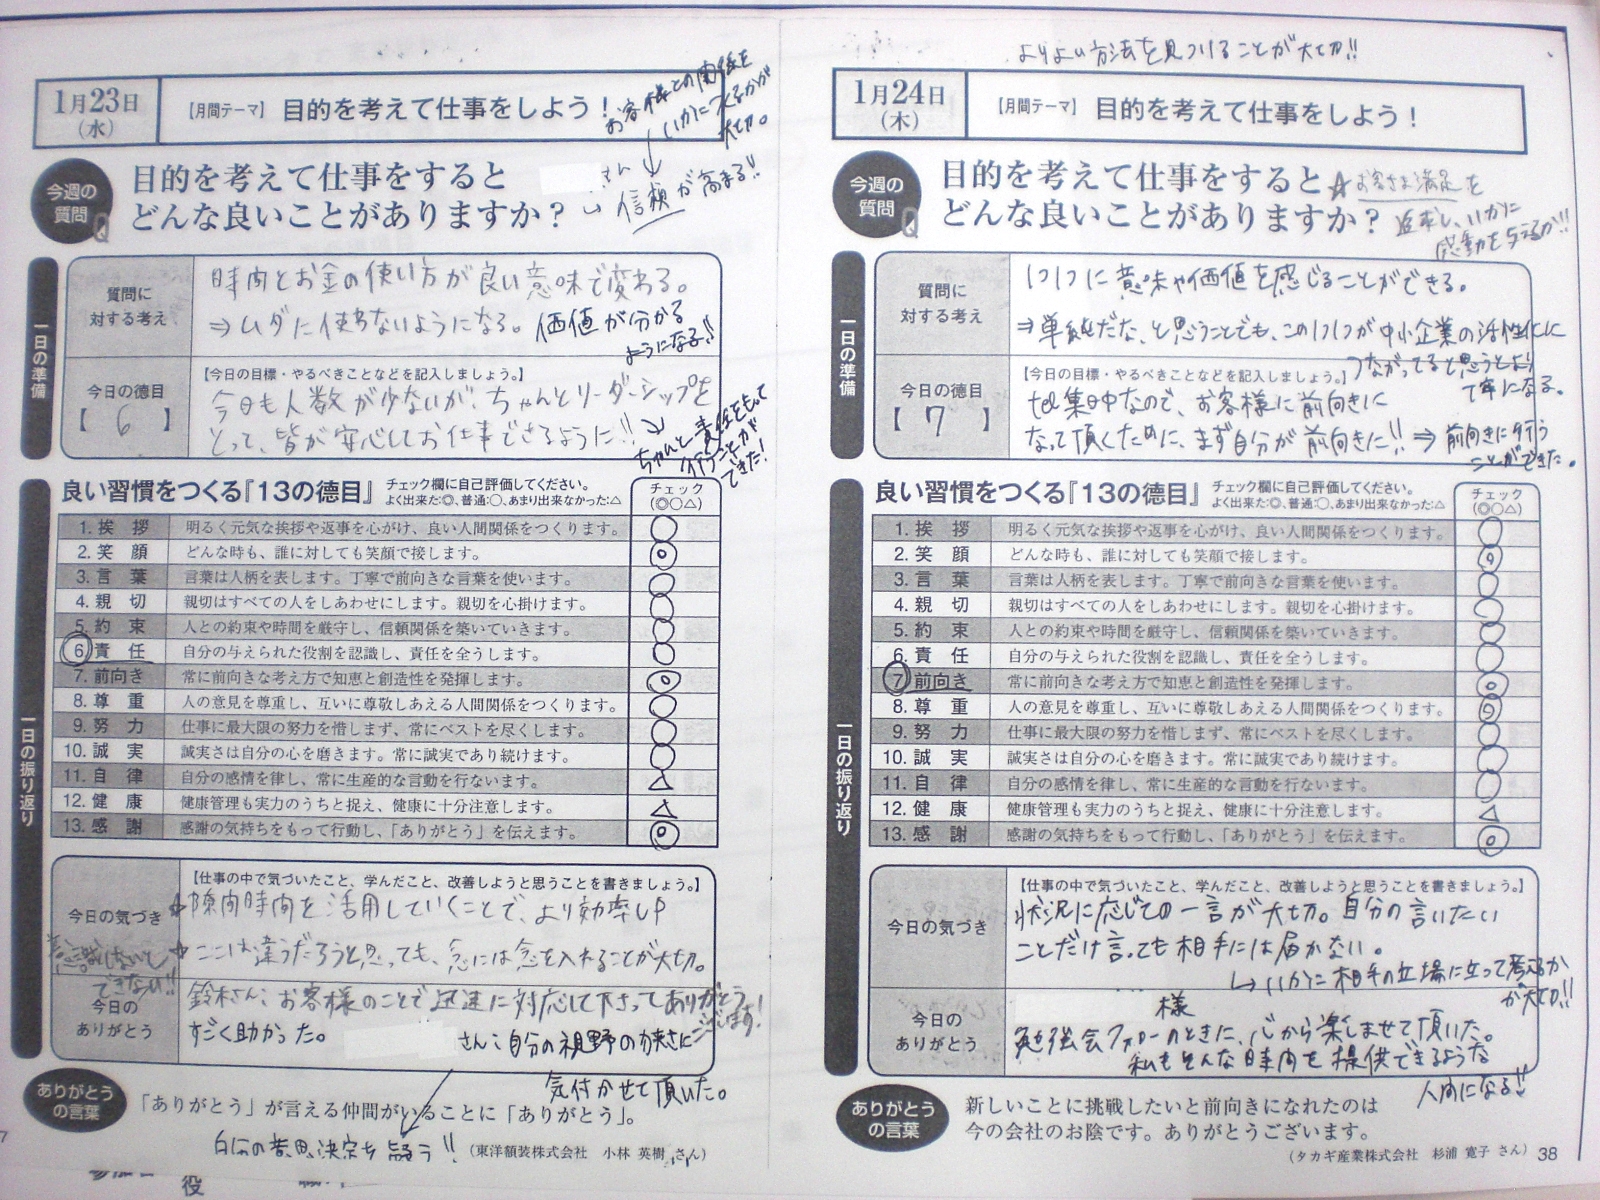 1月23日
(水)
【月間テーマ】 目的を考えて仕事をしよう！
お客様との関係を
いかにつくるかが
大切。
今週の
質問
Q
目的を考えて仕事をすると
どんな良いことがありますか？
さん
信頼が高まる!!
一日の準備
質問に
対する考え
時間とお金の使い方が良い意味で変わる。
⇒ムダに使わないようになる。価値が分かる
ようになる!!
今日の徳目
【 6 】
【今日の目標・やるべきことなどを記入しましょう。】
今日も人数が少ないが、ちゃんとリーダーシップを
とって、皆が安心してお仕事できるように!!
ちゃんと責任をもって
行うことが
できた!
一日の振り返り
良い習慣をつくる『13の徳目』
チェック欄に自己評価してください。
よく出来た:◎、普通:○、あまり出来なかった:△
チェック
(◎○△)
1. 挨 拶 明るく元気な挨拶や返事を心がけ、良い人間関係をつくります。 ○
2. 笑 顔 どんな時も、誰に対しても笑顔で接します。 ◎
3. 言 葉 言葉は人柄を表します。丁寧で前向きな言葉を使います。 ○
4. 親 切 親切はすべての人をしあわせにします。親切を心掛けます。 ○
5. 約 束 人との約束や時間を厳守し、信頼関係を築いていきます。 ○
6. 責 任 自分の与えられた役割を認識し、責任を全うします。 ○
7. 前向き 常に前向きな考え方で知恵と創造性を発揮します。 ◎
8. 尊 重 人の意見を尊重し、互いに尊敬しあえる人間関係をつくります。 ○
9. 努 力 仕事に最大限の努力を惜しまず、常にベストを尽くします。 ○
10. 誠 実 誠実さは自分の心を磨きます。常に誠実であり続けます。 ○
11. 自 律 自分の感情を律し、常に生産的な言動を行ないます。 △
12. 健 康 健康管理も実力のうちと捉え、健康に十分注意します。 △
13. 感 謝 感謝の気持ちをもって行動し、「ありがとう」を伝えます。 ◎
今日の気づき
【仕事の中で気づいたこと、学んだこと、改善しようと思うことを書きましょう。】
隙間時間を活用していくことで、より効率UP
ここは違うだろうと思っても、念には念を入れることが大切。
意識しないと
できない!!
今日の
ありがとう
鈴木さん:お客様のことで迅速に対応して下さってありがとう
ございます!
すごく助かった。
さん:自分の視野の狭さに
気付かせて頂いた。
ありがとう
の言葉
「ありがとう」が言える仲間がいることに「ありがとう」。
自分の意思決定を疑う!!
(東洋額装株式会社 小林 英樹 さん)
7
役
よりよい方法を見つけることが大切!!
1月24日
(木)
【月間テーマ】 目的を考えて仕事をしよう！
今週の
質問
Q
目的を考えて仕事をすると
どんな良いことがありますか？
☆お客さま満足を
追求し、いかに
感動を与えるか!!
一日の準備
質問に
対する考え
1つ1つに意味や価値を感じることができる。
⇒単純だな、と思うことでも、この1つ1つが中小企業の活性化に
つながってると思うとより
丁寧になる。
今日の徳目
【 7 】
【今日の目標・やるべきことなどを記入しましょう。】
tel集中なので、お客様に前向きに
なって頂くために、まず自分が前向きに!! ⇒ 前向きに行う
ことができた。
一日の振り返り
良い習慣をつくる『13の徳目』
チェック欄に自己評価してください。
よく出来た:◎、普通:○、あまり出来なかった:△
チェック
(◎○△)
1. 挨 拶 明るく元気な挨拶や返事を心がけ、良い人間関係をつくります。 ○
2. 笑 顔 どんな時も、誰に対しても笑顔で接します。 ◎
3. 言 葉 言葉は人柄を表します。丁寧で前向きな言葉を使います。 ○
4. 親 切 親切はすべての人をしあわせにします。親切を心掛けます。 ○
5. 約 束 人との約束や時間を厳守し、信頼関係を築いていきます。 ○
6. 責 任 自分の与えられた役割を認識し、責任を全うします。 ○
7. 前向き 常に前向きな考え方で知恵と創造性を発揮します。 ◎
8. 尊 重 人の意見を尊重し、互いに尊敬しあえる人間関係をつくります。 ◎
9. 努 力 仕事に最大限の努力を惜しまず、常にベストを尽くします。 ○
10. 誠 実 誠実さは自分の心を磨きます。常に誠実であり続けます。 ○
11. 自 律 自分の感情を律し、常に生産的な言動を行ないます。 ○
12. 健 康 健康管理も実力のうちと捉え、健康に十分注意します。 △
13. 感 謝 感謝の気持ちをもって行動し、「ありがとう」を伝えます。 ◎
今日の気づき
【仕事の中で気づいたこと、学んだこと、改善しようと思うことを書きましょう。】
状況に応じての一言が大切。自分の言いたい
ことだけ言っても相手には届かない。
↳いかに相手の立場に立って考えるか
が大切!!
今日の
ありがとう
様
勉強会フォローのときに、心から楽しませて頂いた。
私もそんな時間を提供できるような
人間になる!!
ありがとう
の言葉
新しいことに挑戦したいと前向きになれたのは
今の会社のお陰です。ありがとうございます。
(タカギ産業株式会社 杉浦 寛子 さん)
38